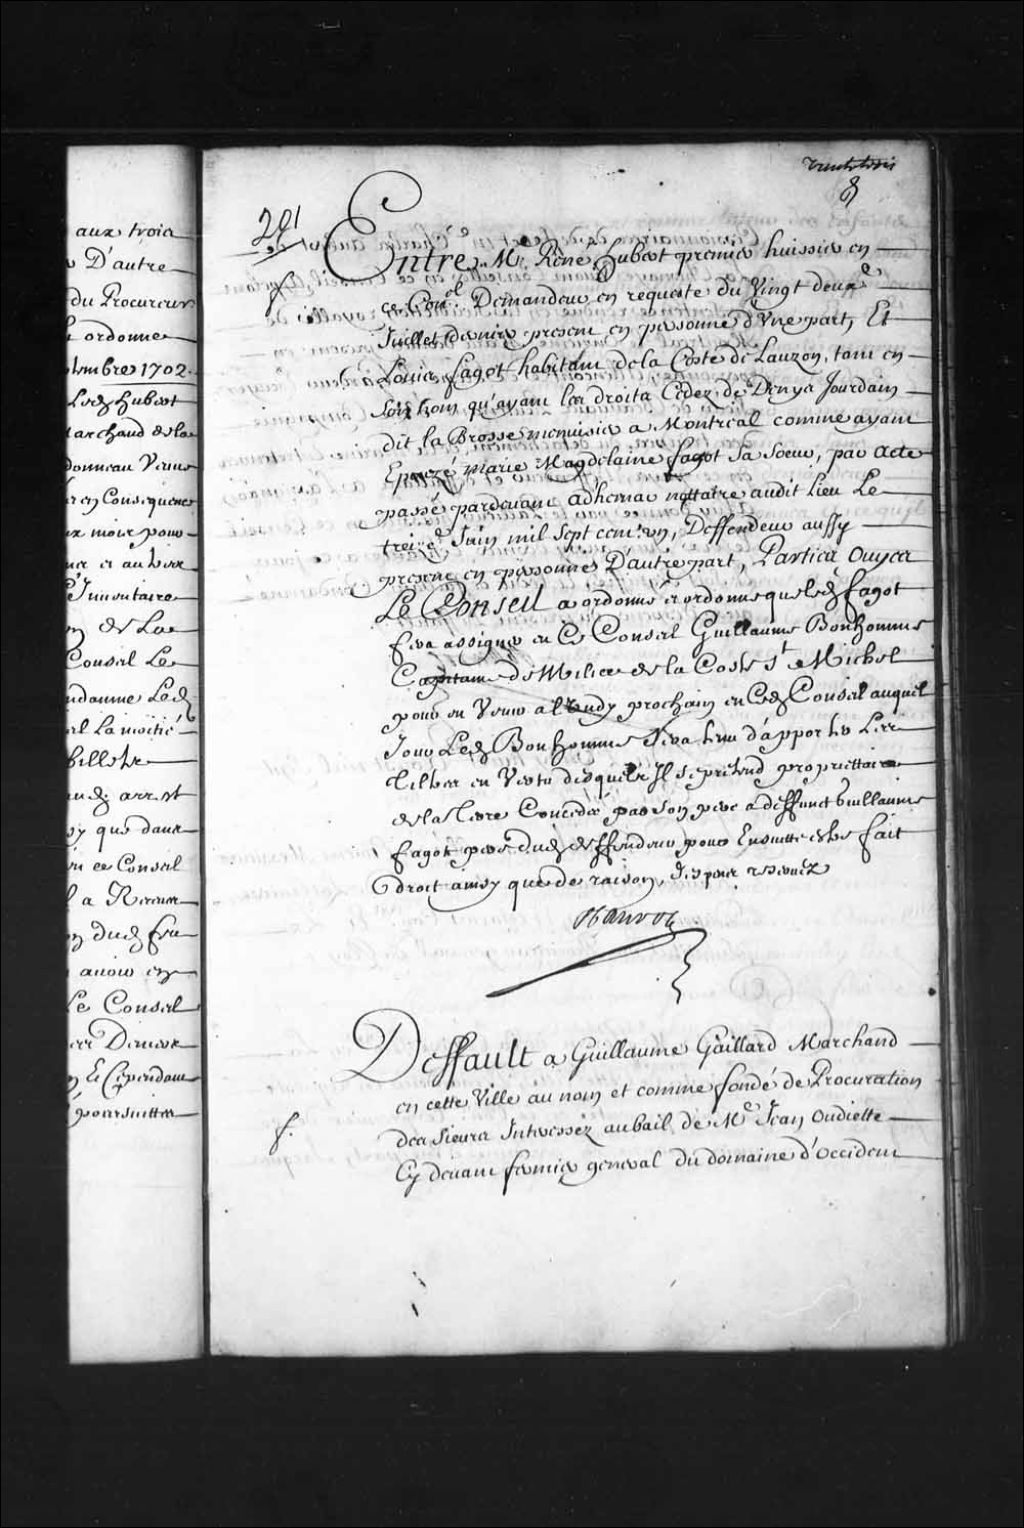 aux trois
D'autre
du Procureur
ordonne
tembre 1702.
Led. hubert
Marchand de la
donneau Veuve
en Consequence
x mois pour
et au bien
Inventaire
de La
Conseil Le
ndamne Led.
La moitié
billette
aud. arrest
que dans
ce Conseil
a Recevr
dud. feu
avoir en
Le Conseil
Et Cependant
poursuittes
trente trois
8
291
f
Entre Me. Réne hubert premier huissier en
ce Conel. Demandeur en requeste du Vingt deuxe
Juillet dernier present en personne d'Vne part, Et
Louis fagot habitant de la Coste de Lauzon, tant en
son nom qu'ayant les droits Cedez de Denys Jourdain
dit la Brosse menuisier a Montreal comme ayant
Epouzé marie Magdelaine fagot sa soeur, par acte
passé pardevant adhemar nottaire audit Lieu Le
treize. Juin mil sept cent. vn, Deffendeur aussy
present en personne D'autre part, Parties Ouyes
Le Conseil a ordonné et ordonne que led. fagot
fera assigner en Ce Conseil Guillaume Bonhomme
Capitaine de Milice de la Coste St Michel
pour en Venir a Lundy prochain en Ced. Conseil auquel
Jour Led. Bonhomme sera tenu d'apporter Les
tiltres en Vertu desquels Il se prétend propriettaire
de la terre Concedée par son pere a deffunct Guillaume
fagot pere dud. deffendeur pour Ensuitte estre fait
droit ainsy que de raison, despens reservéz
Deffault a Guillaume Gaillard Marchand
en cette Ville au nom et comme fondé de Procuration
f.
des sieurs Intheressez au bail de Me. Jean Oudiette
Cy devant fermier general du domaine d'Occident